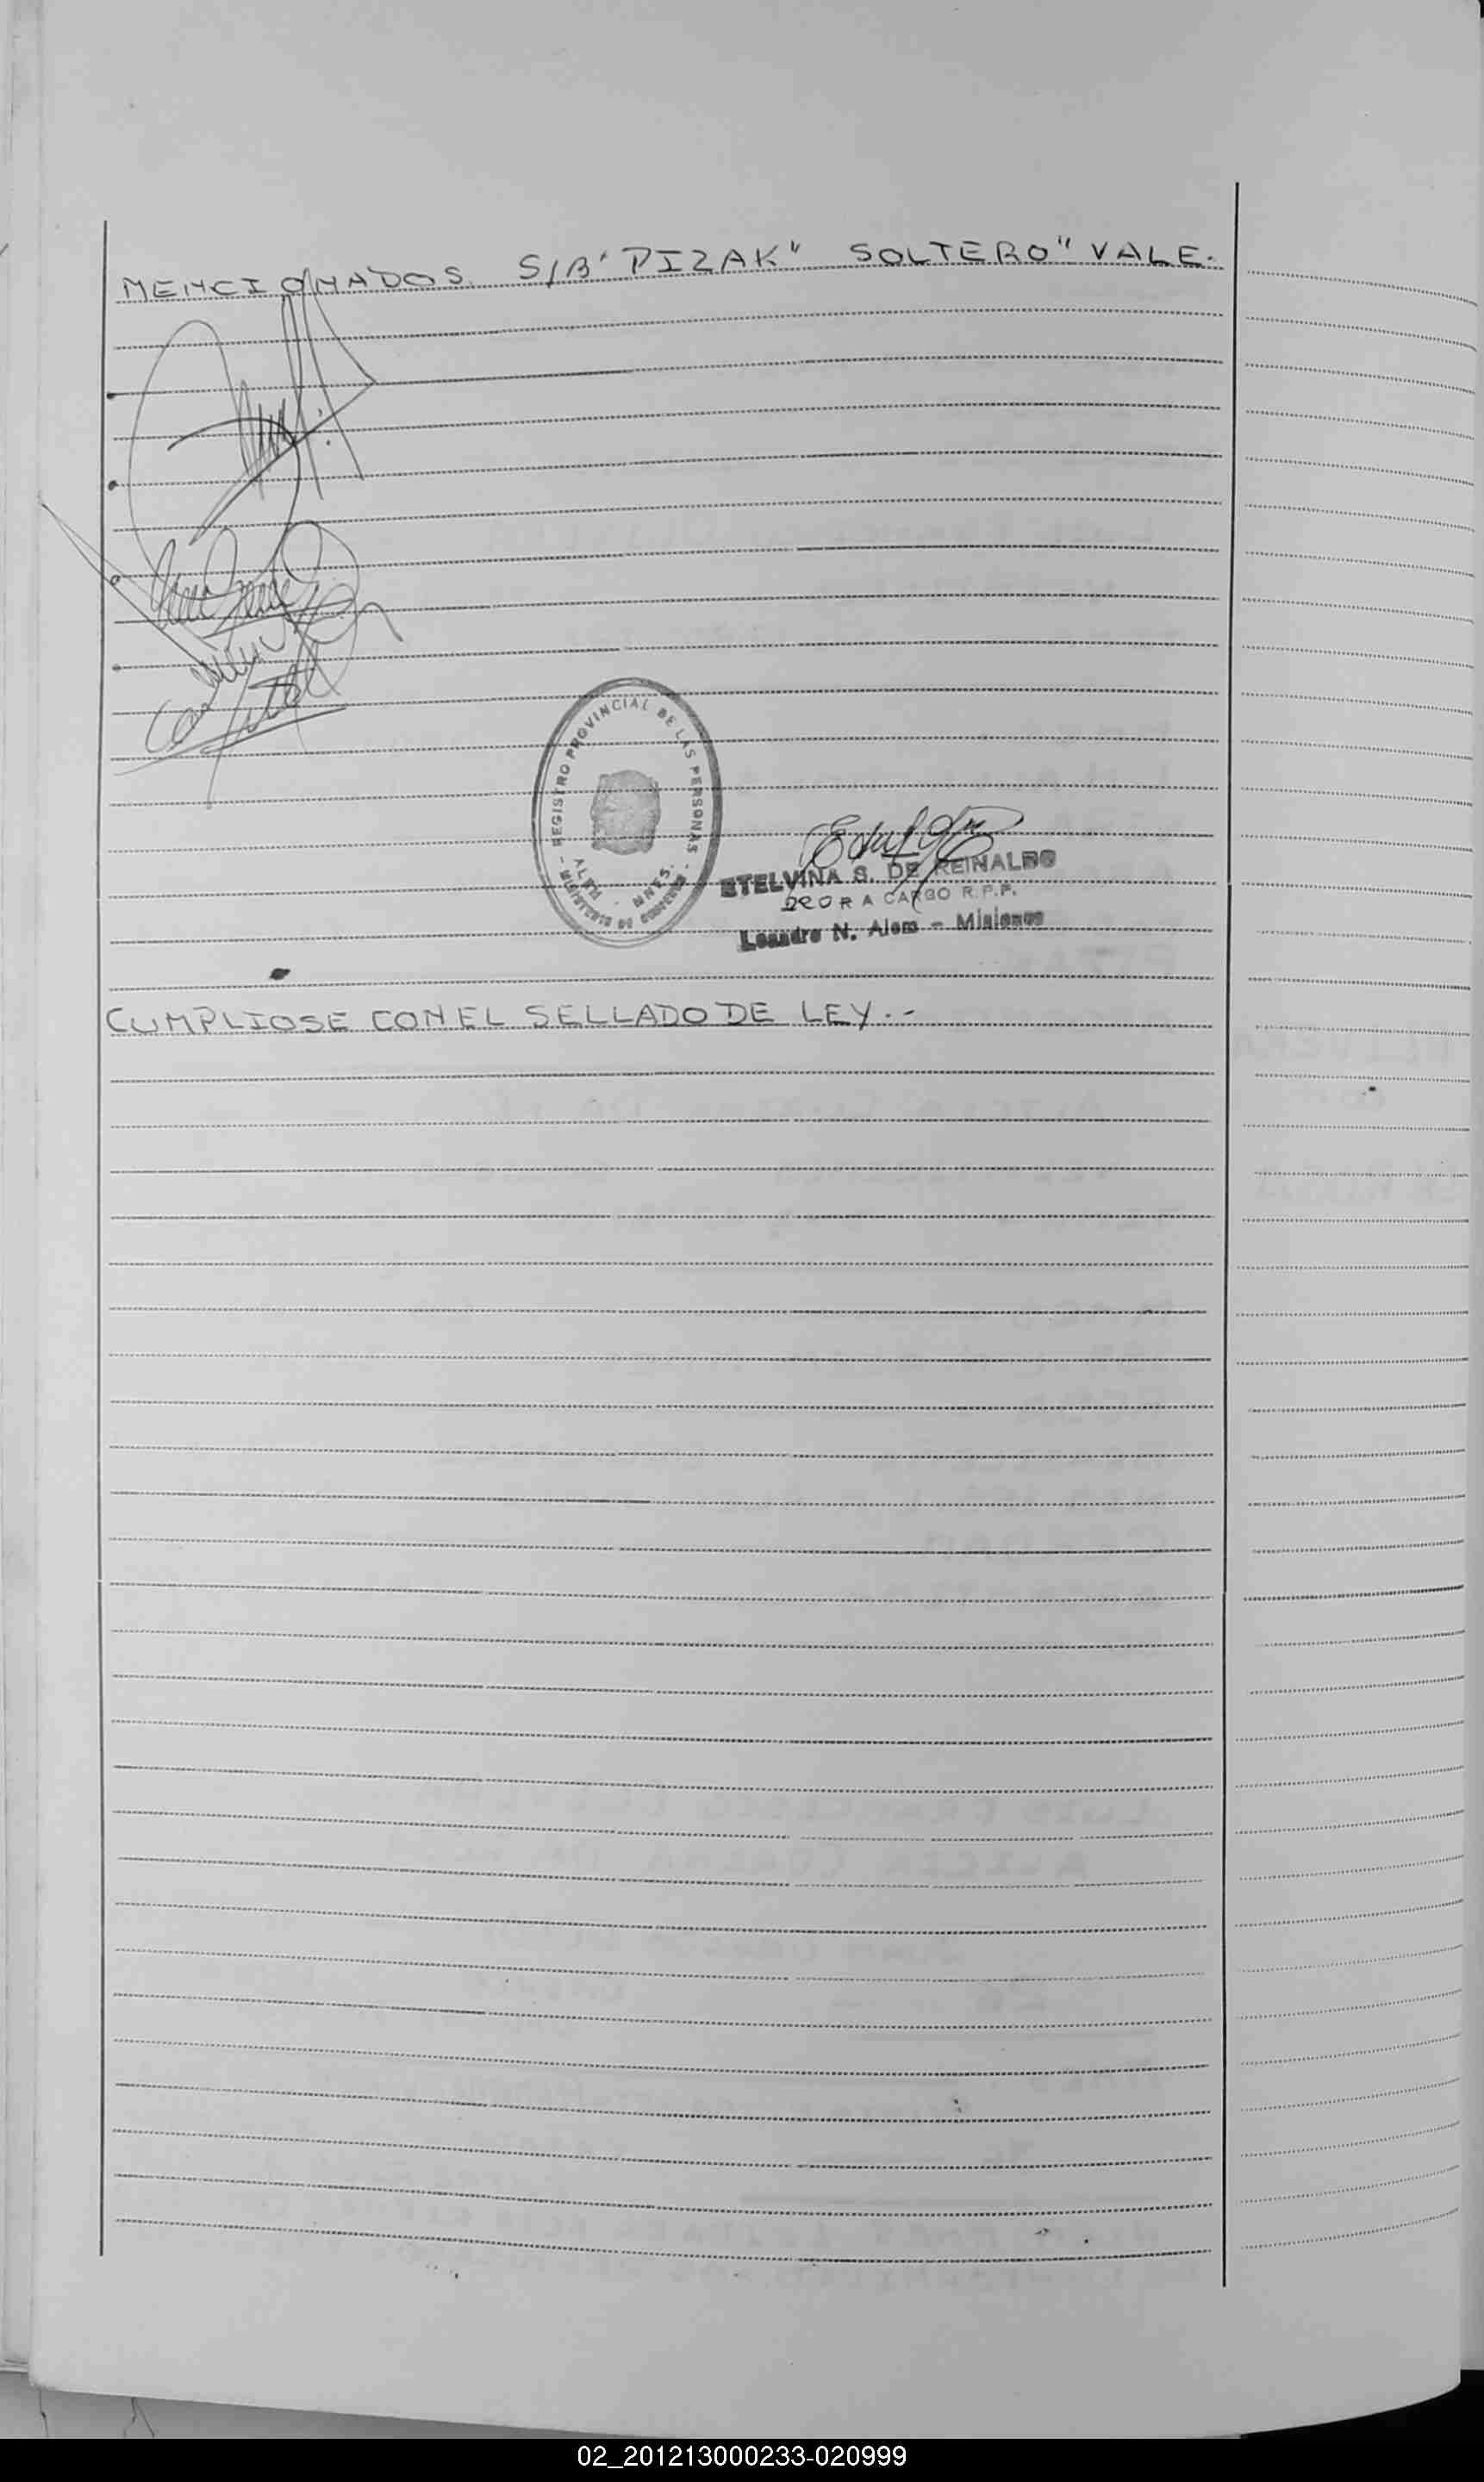 MENCIONADOS. S/B "PIZAK" SOLTERO" VALE.
REGISTRO PROVINCIAL DE LAS PERSONAS
MINISTERIO DE GOBIERNO
ALEM - MNES.
ESTELVINA S. DE REINALDO
A CARGO R.P.P.
Leandro N. Alem - Misiones
CUMPLIOSE CON EL SELLADO DE LEY.-
02_201213000233-020999